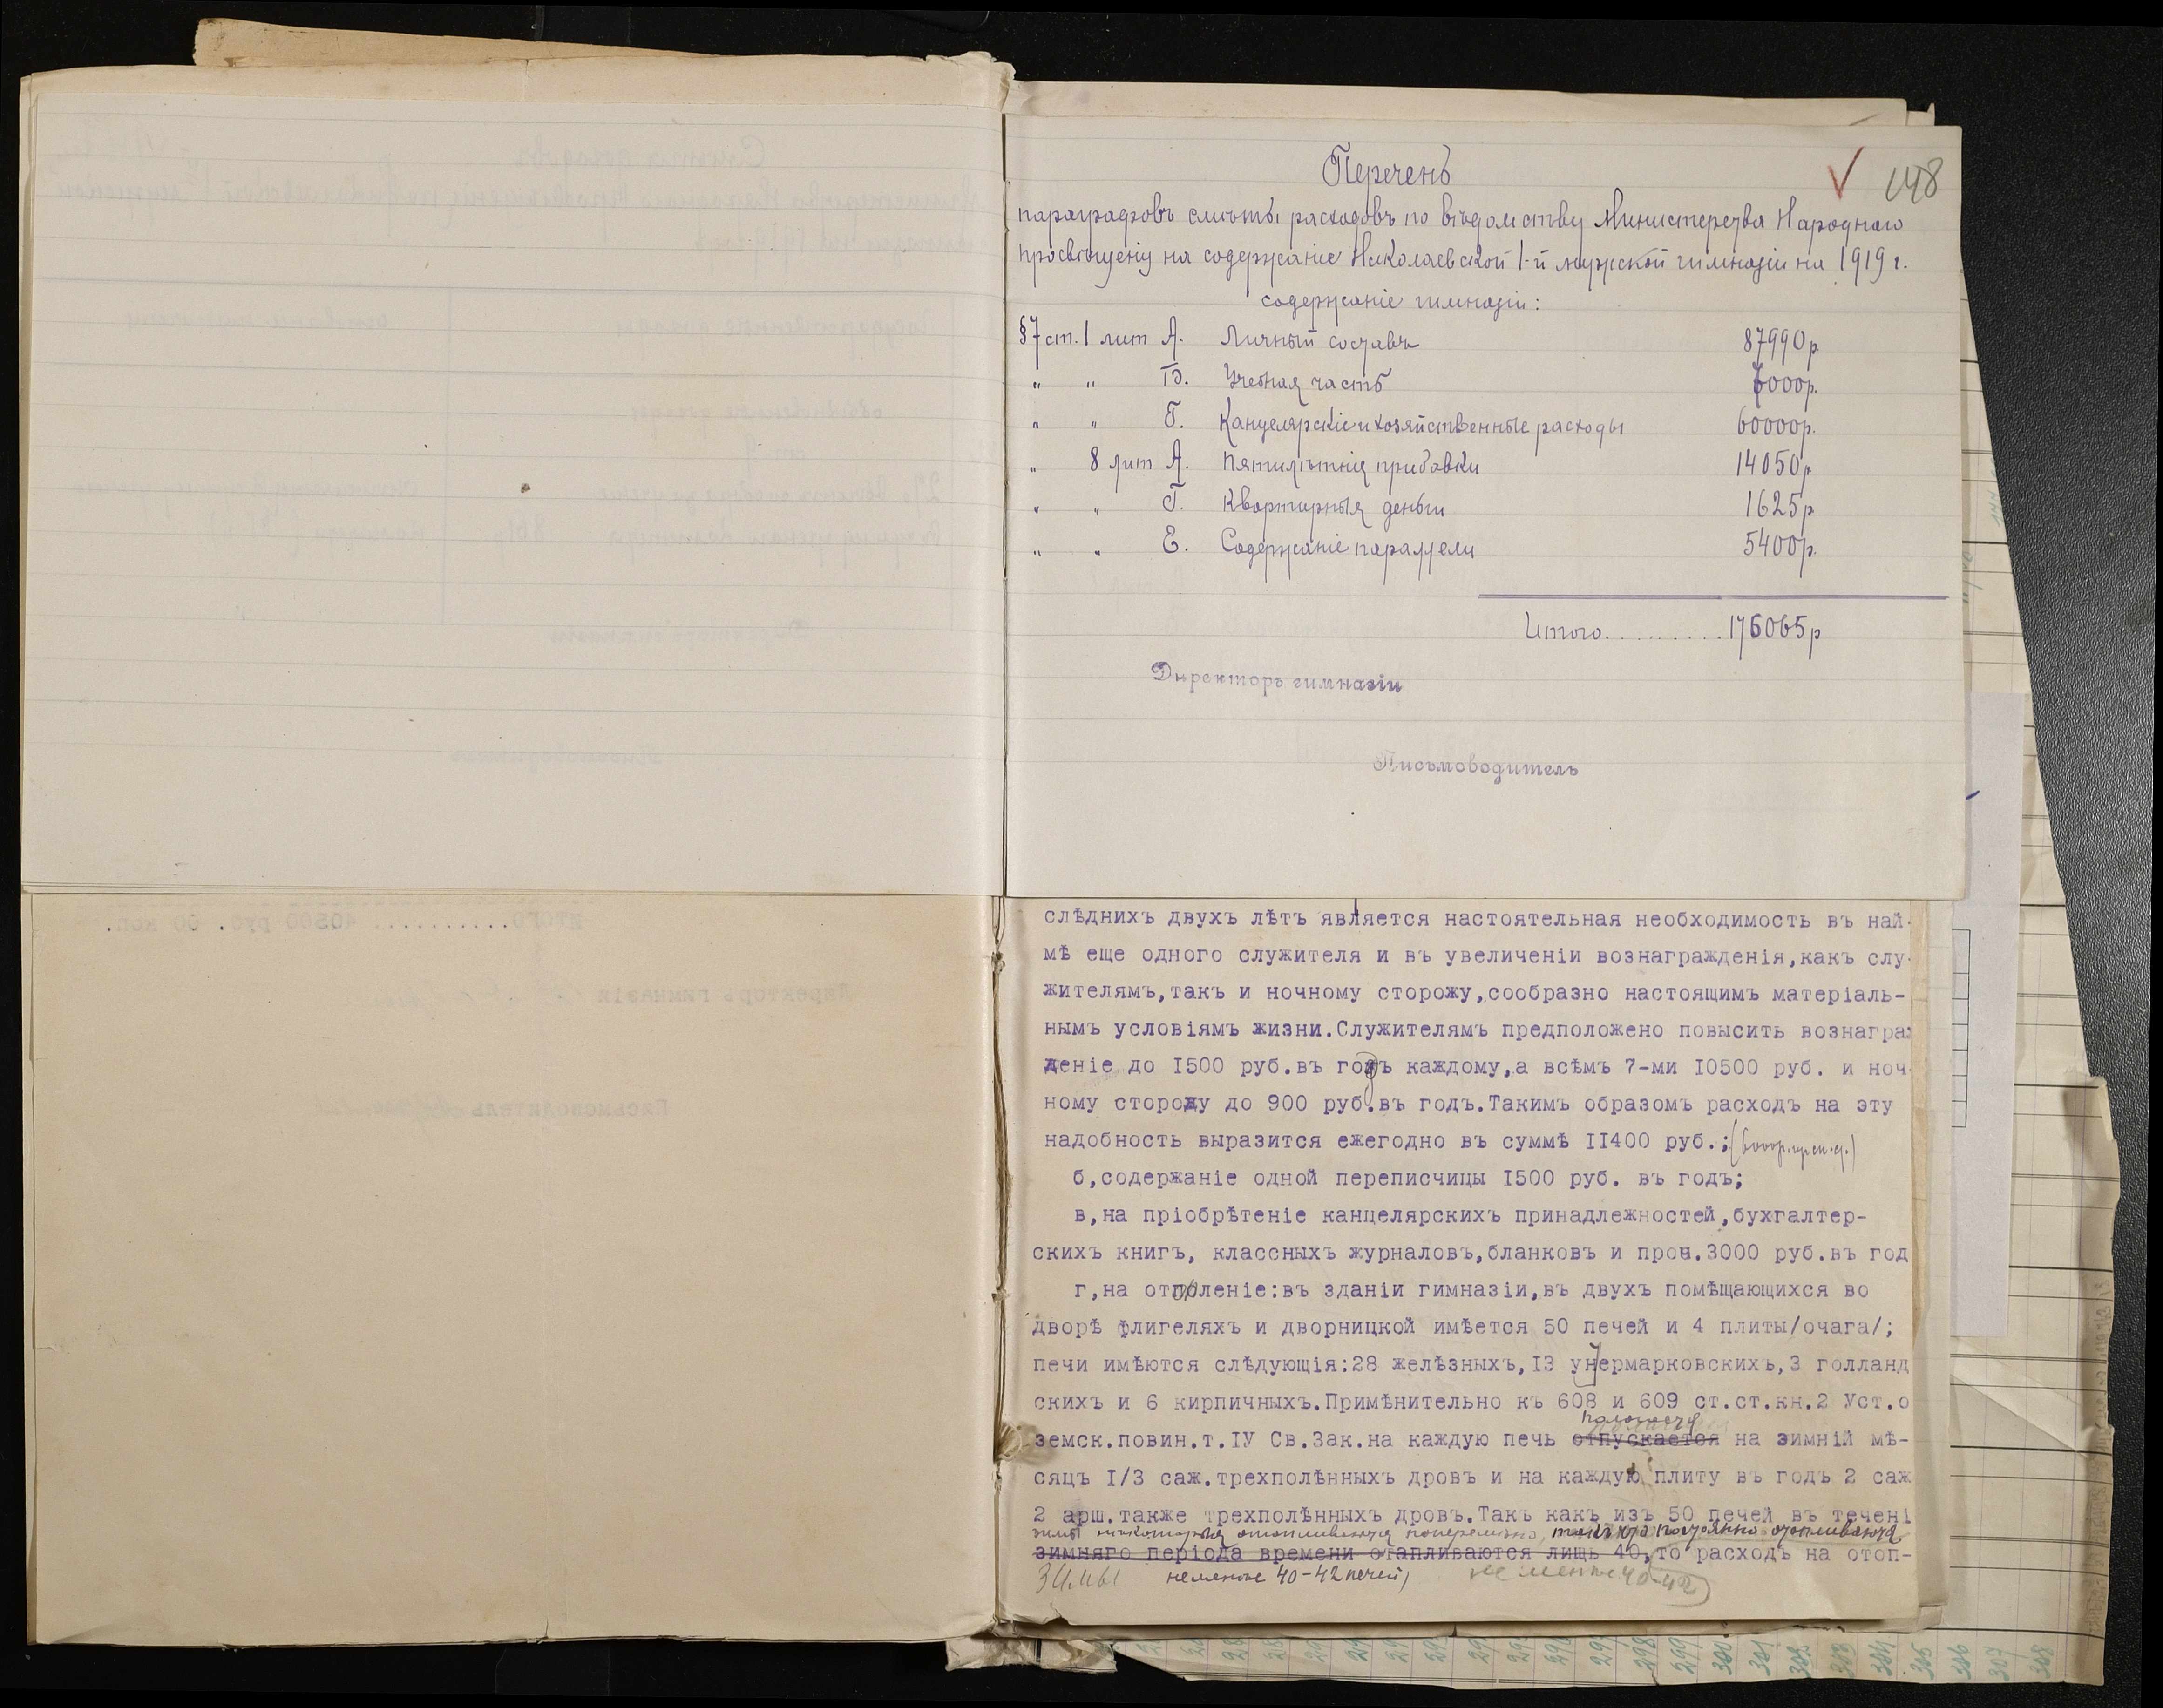 148
Перечень
параграфовъ смѣты расходовъ по вѣдомству Министерства Народнаго
просвѣщенія на содержаніе Николаевской 1-й мужской гимназіи на 1919 г.
содержаніе гимназіи:
§7 ст. 1 лит А. Личный составъ 87990р
" " Б. Учебная часть 7000р.
" " Г. Канцелярскіе и хозяйственные расходы 60000р.
" 8 лит А. Пятилѣтнія прибавки 14050р
" " Г. Квартирныя деньги 1625р
" " Е. Содержаніе параллели 5400р.
Итого.......... 176065р
Директоръ гимназіи
Письмоводитель
слѣднихъ двухъ лѣтъ является настоятельная необходимость въ най-
мѣ еще одного служителя и въ увеличеніи вознагражденія,какъ слу-
жителямъ,такъ и ночному сторожу,сообразно настоящимъ матеріаль-
нымъ условіямъ жизни.Служителямъ предположено повысить вознаграж
деніе до I500 руб.въ годъ каждому,а всѣмъ 7-ми I0500 руб. и ноч-
ному сторожу до 900 руб.въ годъ.Такимъ образомъ расходъ на эту
надобность выразится ежегодно въ суммѣ II400 руб.;
б,содержаніе одной переписчицы I500 руб. въ годъ;
в,на пріобрѣтеніе канцелярскихъ принадлежностей,бухгалтер-
скихъ книгъ, классныхъ журналовъ,бланковъ и проч.3000 руб.въ год
г,на отопленіе:въ зданіи гимназіи,въ двухъ помѣщающихся во
дворѣ флигеляхъ и дворницкой имѣется 50 печей и 4 плиты/очага/;
печи имѣются слѣдующія:28 желѣзныхъ,I3 унтермарковскихъ,3 голланд
скихъ и 6 кирпичныхъ.Примѣнительно къ 608 и 609 ст.ст.кн.2 Уст.о
полагается
земск.повин.т.IУ Св.Зак.на каждую печь отпускается на зимній мѣ-
сяцъ I/3 саж.трехполѣнныхъ дровъ и на каждую плиту въ годъ 2 саж
2 арш.также трехполѣнныхъ дровъ.Такъ какъ изъ 50 печей въ течені
зимы некоторыя отопливаются поперемѣнно, постоянно отопливаются
зимняго періода времени отапливаются лишь 40,то расходъ на отоп-
зимы не менѣе 40-42 печей, не менѣе 40-42